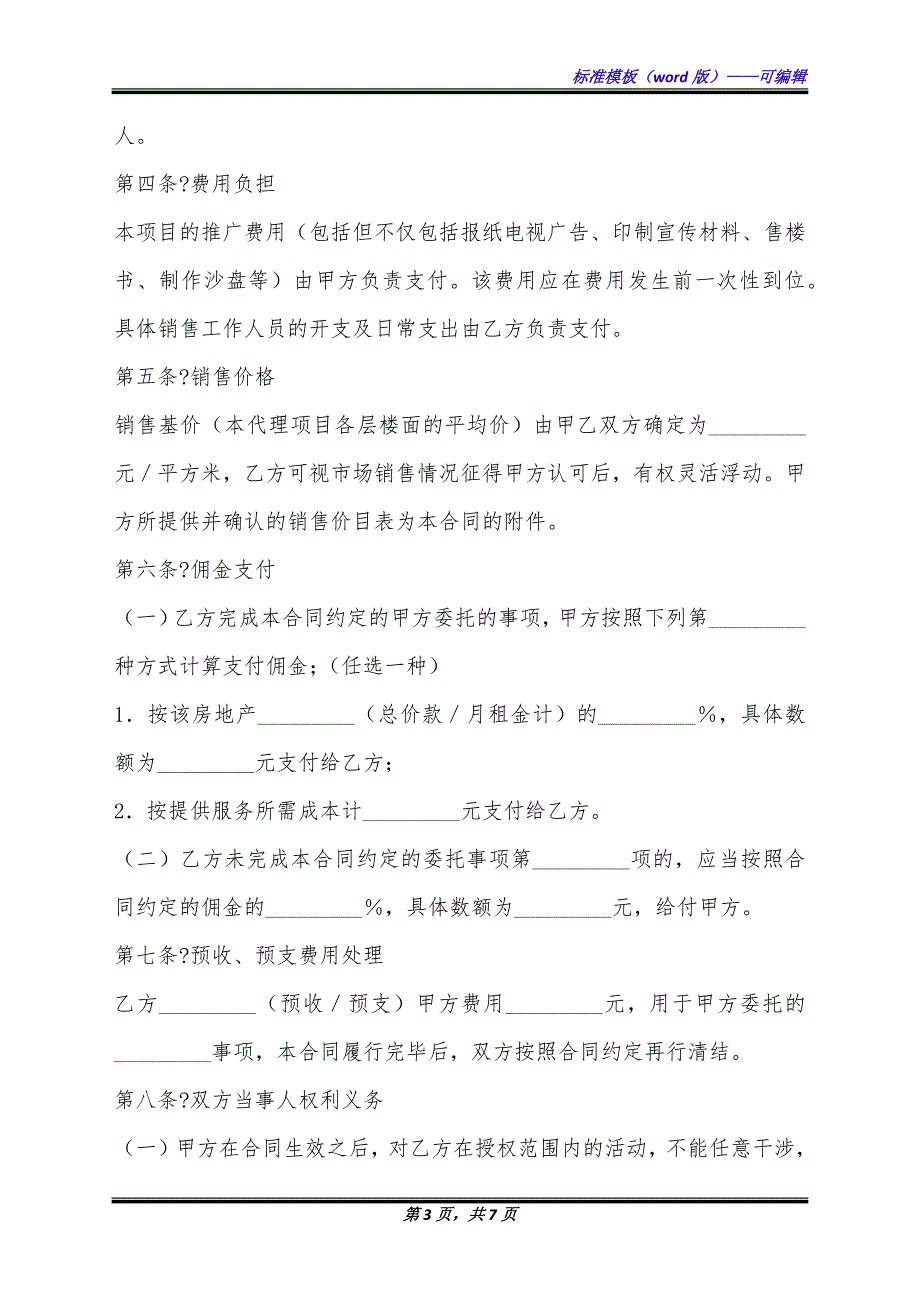 标准模板（word 版）——可编辑
人。
第四条?费用负担
本项目的推广费用（包括但不仅包括报纸电视广告、印制宣传材料、售楼
书、制作沙盘等）由甲方负责支付。该费用应在费用发生前一次性到位。
具体销售工作人员的开支及日常支出由乙方负责支付。
第五条?销售价格
销售基价（本代理项目各层楼面的平均价）由甲乙双方确定为_________
元／平方米，乙方可视市场销售情况征得甲方认可后，有权灵活浮动。甲
方所提供并确认的销售价目表为本合同的附件。
第六条?佣金支付
（一）乙方完成本合同约定的甲方委托的事项，甲方按照下列第_________
种方式计算支付佣金；（任选一种）
1．按该房地产_________（总价款／月租金计）的_________％，具体数
额为_________元支付给乙方；
2．按提供服务所需成本计_________元支付给乙方。
（二）乙方未完成本合同约定的委托事项第_________项的，应当按照合
同约定的佣金的_________％，具体数额为_________元，给付甲方。
第七条?预收、预支费用处理
乙方_________（预收／预支）甲方费用_________元，用于甲方委托的
_________事项，本合同履行完毕后，双方按照合同约定再行清结。
第八条?双方当事人权利义务
（一）甲方在合同生效之后，对乙方在授权范围内的活动，不能任意干涉，
第 3 页，共 7 页